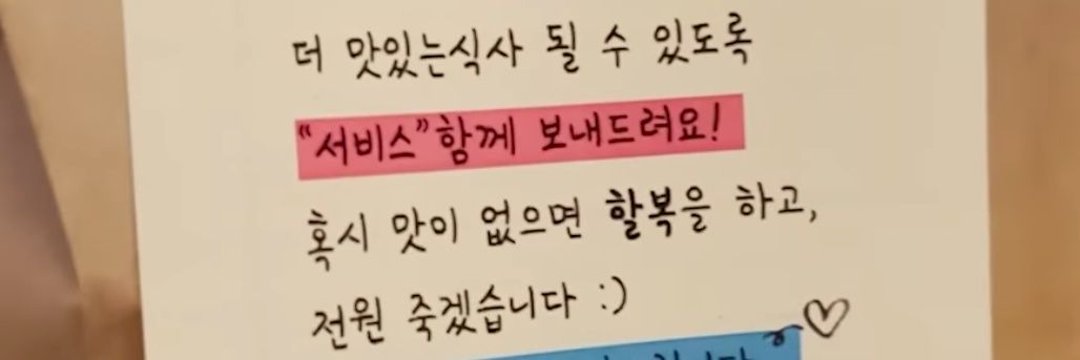 더 맛있는식사 될 수 있도록
“서비스”함께 보내드려요!
혹시 맛이 없으면 할복을 하고,
전원 죽겠습니다 :)